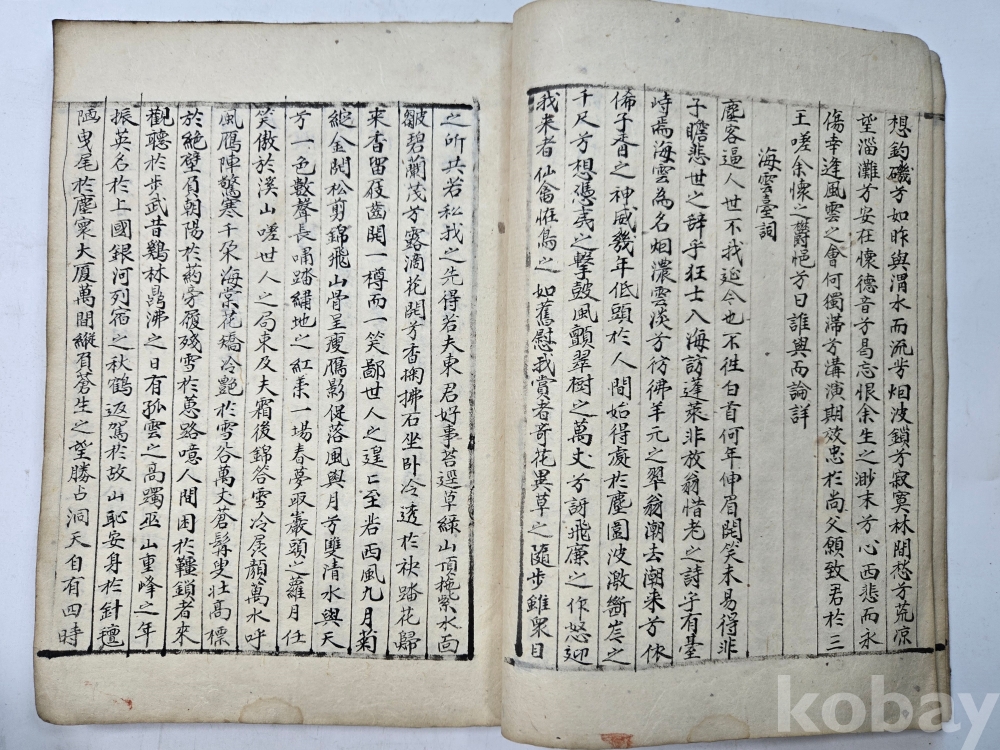 想釣磯兮如昨與渭水而流兮烟波鎖兮寂寞林間愁兮荒凉
望淄灘兮安在懷德音兮曷忘恨余生之渺末兮心西悲而永
傷幸逢風雲之會何獨滞兮溝演期效忠於尚父願致君於三
王嗟余懷之欝悒兮日誰與而論詳
海雲臺詞
塵客逼人世不我延今也不徃白首何年伸眉開笑未易得非
子瞻悲世之辞乎狂士入海訪蓬萊非放翁惜老之詩乎有臺
峙焉海雲為名烟濃雲淡兮彷彿羊元之翠翁潮去潮来兮依
俙子胥之神威幾年低頭於人間始得處於塵圓波激斷崖之
千尺兮想憑夷之擊鼓風顫翠樹之萬丈兮訝飛廉之作怒迎
我来者仙禽恠鳥之如舊慰我賞者奇花異草之随步雖衆目
之所共若私我之先得若夫東君好事苔逕草綠山頂拖紫水面
皺碧蘭茂兮露滴花開兮香掬拂石坐卧冷透於袂踏花歸
来香留屐齒開一樽而一笑鄙世人之遑〻至若西風九月菊
綻金開松剪錦飛山骨呈瘦鴈影促落風與月兮雙清水與天
兮一色數聲長嘯踏繡地之紅柔一場春夢取巖頭之蘿月任
笑傲於溪山嗟世人之局束及夫霜後錦谷雪冷孱顔萬水呼
風鴈陣驚寒千朶海棠花矯冷艶於雪谷萬丈蒼髯叟壯高標
於絶壁負朝陽於葯房履殘雪於蕙路噫人間困於韁鎖者来
觀聽於步武昔鷄林鼎沸之日有孤雲之高躅巫山重峰之年
振英名於上國銀河列宿之秋鶴返駕於故山恥安身於針氊
陋曳尾於塵寰大厦萬間縱負蒼生之望勝占洞天自有四時
kobay